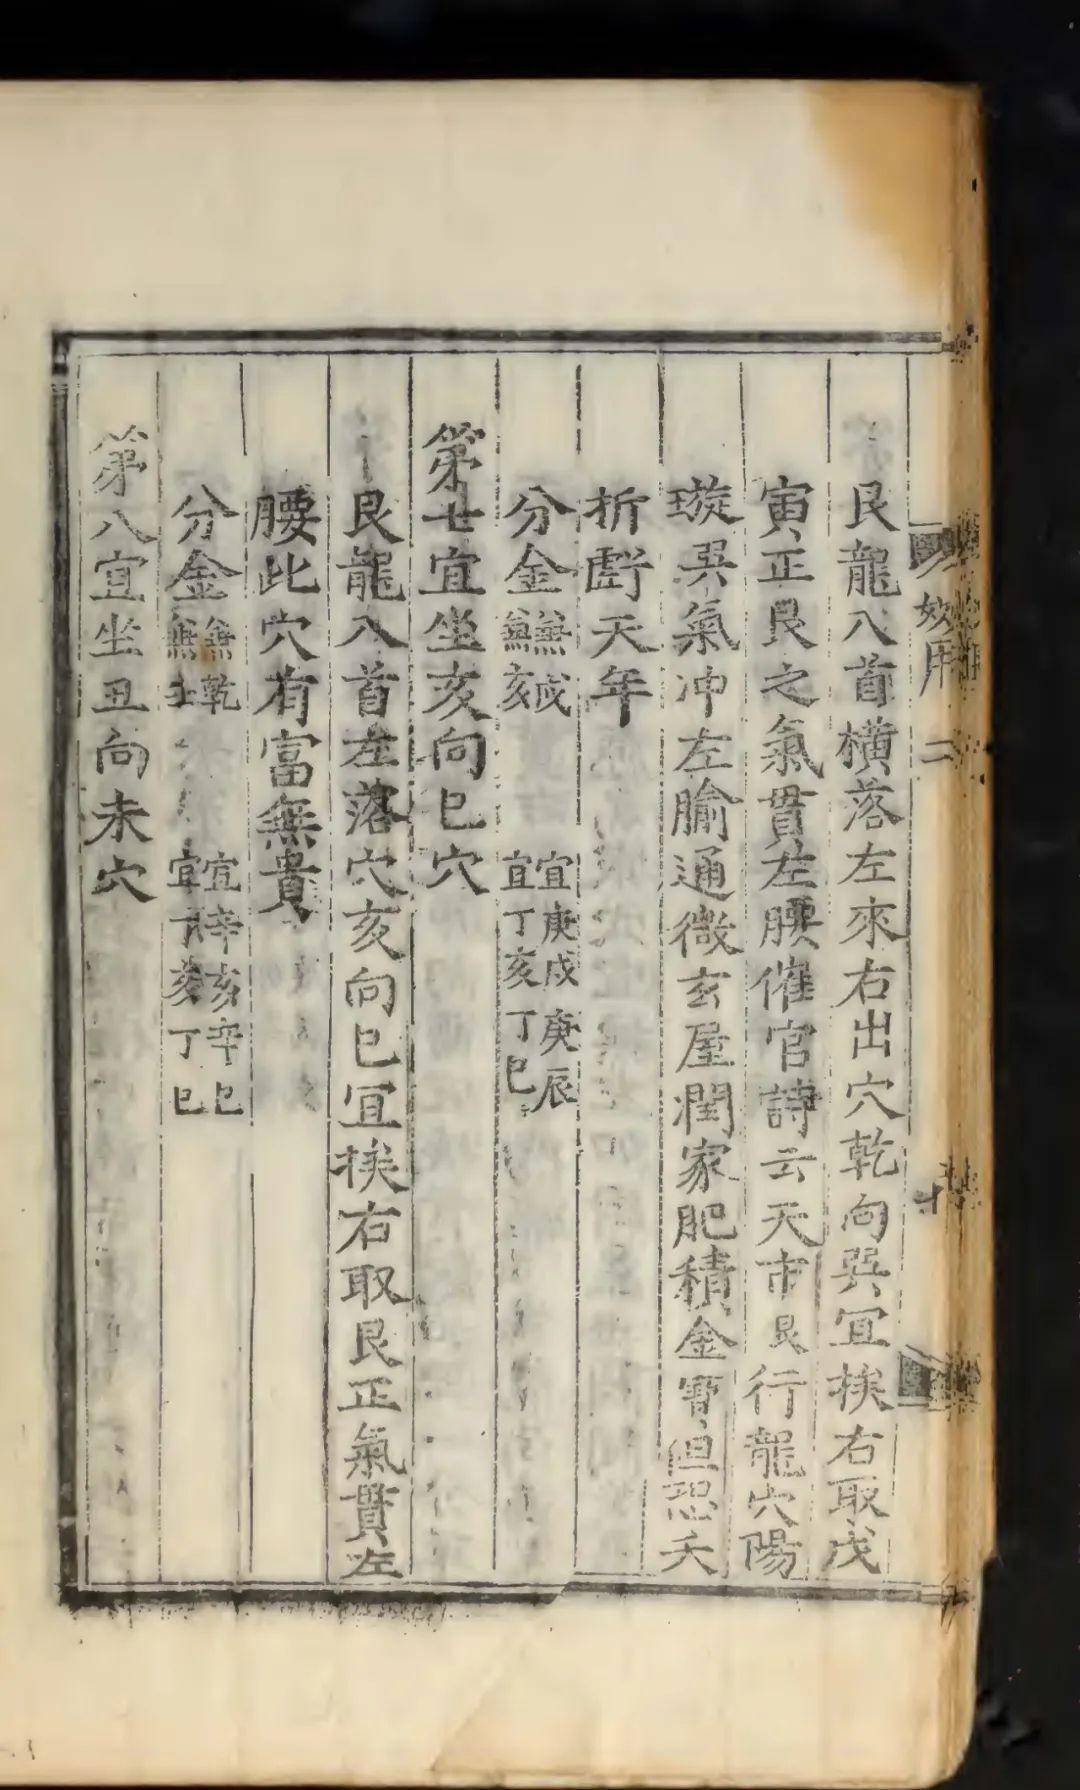 艮龍入首橫落左來右出穴乾向巽宜挨右取戊
寅正艮之氣貫左腰催官詩云天市艮行龍穴陽
璇巽氣冲左腧通微玄屋潤家肥積金寶但恐夭
折虧天年
分金兼戌 宜庚戌庚辰
兼亥 宜丁亥丁巳
第七宜坐亥向巳穴
艮龍入首左落穴亥向巳宜挨右取艮正氣貫左
腰此穴有富無貴
分金兼乾 宜辛亥辛巳
兼壬 亥丁巳
第八宜坐丑向未穴
效用 二
十